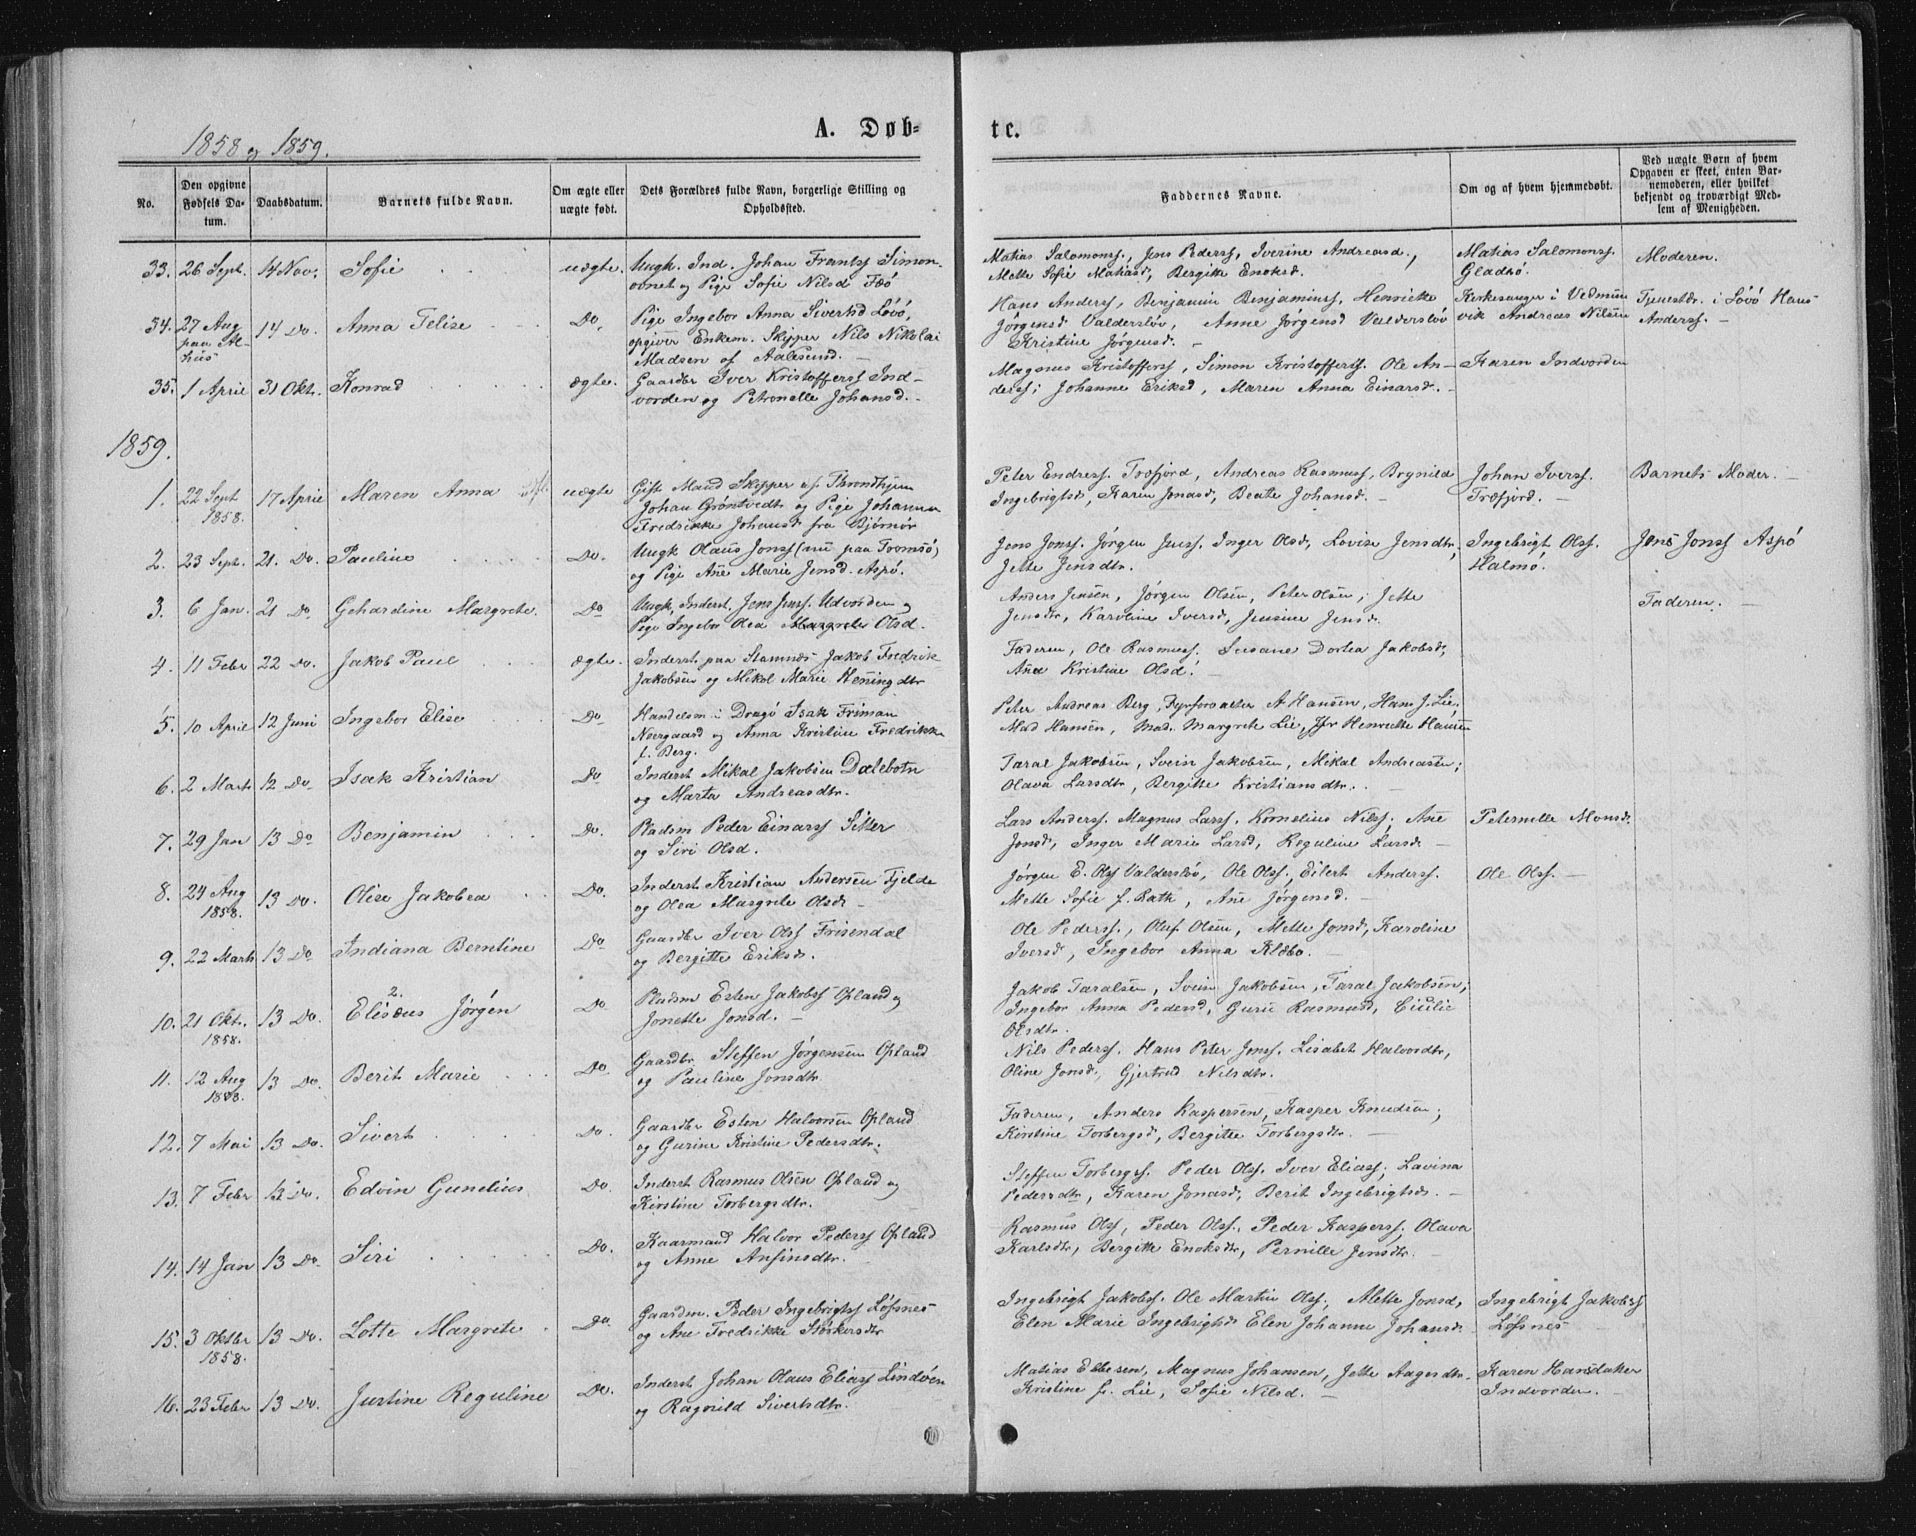 1858 og 1859.
A. Døb-
te.
No.
Den opgivne Fødsels Da-tum.
Daabsdatum.
Barnets fulde Navn.
Om ægte eller uægte født.
Dets Forældres fulde Navn, borgerlige Stilling og Opholdssted.
Faddernes Navne.
Om og af hvem hjemmedøbt.
Ved uægte Børn af hvem Opgaven er skeet, enten Bar-nemoderen, eller hvilket bekjendt og troværdigt Med-lem af Menigheden.
33. 26 Sept. 14 Nov. Sofie uægte. Ungk. Ind. Johan Frants Simon-
ovnet og Pige Sofie Nilsd Fæø
Matias Salomonss., Jens Pederss, Iverine Andreasd.,
Mette Sofie Matiasd, Bergitte Enoksd.
Matias Salomonss.
Gladsø.
Moderen.
34. 27 Aug 14 Do. Anna Felise Do. Pige Ingebor Anna Sivertsd Løvø,
opgiver Enkem. Skipper Nils Nikolai
Madsen af Aalesund.
Hans Anderss, Benjamin Benjaminss, Henriette
Jørgensd Valdersløv, Anne Jørgensd Valdersløv
Kristine Jørgensd.
Kirkesanger i Vedmun
vik Andreas Nilsen
Tjenestdr. i Løvø Hans
Anderss.
35. 1 April 31 Okt. Konrad ægte. Gaardbr Iver Kristofferss Ind-
vorden og Petronelle Johansd.
Magnus Kristofferss, Simon Kristofferss. Ole An-
derss; Johanne Eriksd, Maren Anna Einarsd.
Karen Indvorden
1859.
1. 22 Sept 1858. 17 April Maren Anna uægte Gift Mand Skipper af Throndhjem
Johan Grøntvedt og Pige Johanna
Fredrikke Johansd fra Bjørnør
Peter Endress. Træfjord, Andreas Rasmuss, Brynild
Ingebrigtsd, Karen Jonasd, Beate Johansd.
Johan Iverss.
Træfjord.
Barnets Moder.
2. 23 Sept. 21. Do. Pauline Do. Ungk Olaus Jonss (nu paa Tromsø)
og Pige Ane Marie Jensd. Aspø.
Jens Jonss. Jørgen Jenss. Inger Olsd, Lovise Jensdtr,
Jette Jensdtr.
Ingebrigt Olss.
Halmø.
Jens Jonss Aspø
3. 6 Jan. 21 Do Gehardine Margrete. Do Ungk, Inderst. Jens Jenss. Udvorden og
Pige Ingebor Olea Margrete Olsd.
Anders Jensen, Jørgen Olsen, Peter Olsen; Jette
Jensdtr, Karoline Iversd, Jensine Jensd.
Faderen.
4. 11 Febr 22 Do. Jakob Paul ægte. Inderst paa Stamnes Jakob Fredrik
Jakobsen og Mikol Marie Henningdtr
Faderen, Ole Rasmuss. Susane Dortea Jakobsd,
Ane Kristine Olsd.
5. 10 April 12 Juni Ingebor Elise Do Handelsm i Dragø Isak Friman
Neergaard og Anna Kristine Fredrikke
f. Berg.
Peter Andreas Berg, Fyrforvalter A Hansen, Hans J. Lie,
Mad Hansen, Mad. Margrete Lie, Jfr Henriette Hansen
6. 2 Marts 12 Do. Isak Kristian Do Inderst Mikal Jakobsen Dalebotn
og Marta Andreasdtr.
Taral Jakobsen, Svein Jakobsen, Mikal Andreasen;
Olava Larsdtr, Bergitte Kristiansdtr.
7. 29 Jan 13 Do Benjamin Do. Pladsm Peder Einarss Sitter
og Siri Olsd.
Lars Anderss. Magnus Larss. Kornelius Nilss; Ane
Jonsd, Inger Marie Larsd, Reguline Larsd.
Peternelle Monsd.
8. 24 Aug 1858. 13 Do. Olise Jakobea Do. Inderst Kristian Andersen Fjelde
og Olea Margrete Olsd.
Jørgen E. Olss Valdersløv, Ole Olss., Eilert Anderss.
Mette Sofie f. Rath, Ane Jørgensd.
Ole Olss.
9. 22 Marts 13 Do Indiana Berntine Do Gaardbr Iver Olss Frisendal
og Bergitte Eriksdr.
Ole Pederss., Oluf Olsen, Mette Jonsd, Karoline
Iversd, Ingebor Anna Klæbo.
10. 21 Okt. 1858. 13 Do. Elisæus Jørgen Do Pladsm Esten Jakobss Opland og
Jonette Jonsd.
Jakob Taralsen, Svein Jakobsen, Taral Jakobsen;
Ingebor Anna Pedersd, Guru Rasmusd, Cicilie
Olsdtr.
11. 12 Aug 1858. 13 Do. Berit Marie Do. Gaardbr Steffen Jørgensen Opland
og Pauline Jonsdtr
Nils Pederss. Hans Peter Jonss. Lisabet Halvordtr,
Oline Jonsd, Gjertrud Nilsdtr.
12. 7 Mai 13 Do. Sivert Do. Gaardbr Esten Halvorsen Opland
og Gurine Kristine Pedersdtr.
Faderen, Anders Kaspersen, Kasper Knudsen;
Kirstine Torbergsd, Bergitte Torbergsdtr.
13. 7 Febr 13 Do. Edvin Gunelius Do. Inderst Rasmus Olsen Opland og
Kirstine Torbergsdtr.
Steffen Torbergss. Peder Olss. Iver Eliass; Lavina
Pedersdtr, Karen Jonasd, Berit Ingebrigtsdr.
14. 14 Jan 13 Do. Siri Do. Kaarmand Halvor Pederss Opland
og Anne Anfinsdtr.
Rasmus Olss, Peder Olss. Peder Kasperss; Olava
Karlsdtr, Bergitte Enoksdtr, Pernille Jensdtr.
15. 3 Oktbr 1858. 13 Do. Lotte Margrete Do. Gaardm. Peder Ingebrigtss Løfsnes
og Ane Fredrikke Størkersdtr
Ingebrigt Jakobss. Ole Martin Olss, Mette Jonsd,
Elen Marie Ingebrigtsd Elen Johanne Johansd.
Ingebrigt Jakobss
Løfsnes
16. 23 Febr 13 Do. Justine Reguline Do. Inderst Johan Olaus Eliass Lindøen
og Ragnild Sivertsdtr.
Matias Ellesen, Magnus Johansen, Jette Aagesdtr.
Kristine f. Lie, Sofie Nilsd.
Karen
Indvorden.